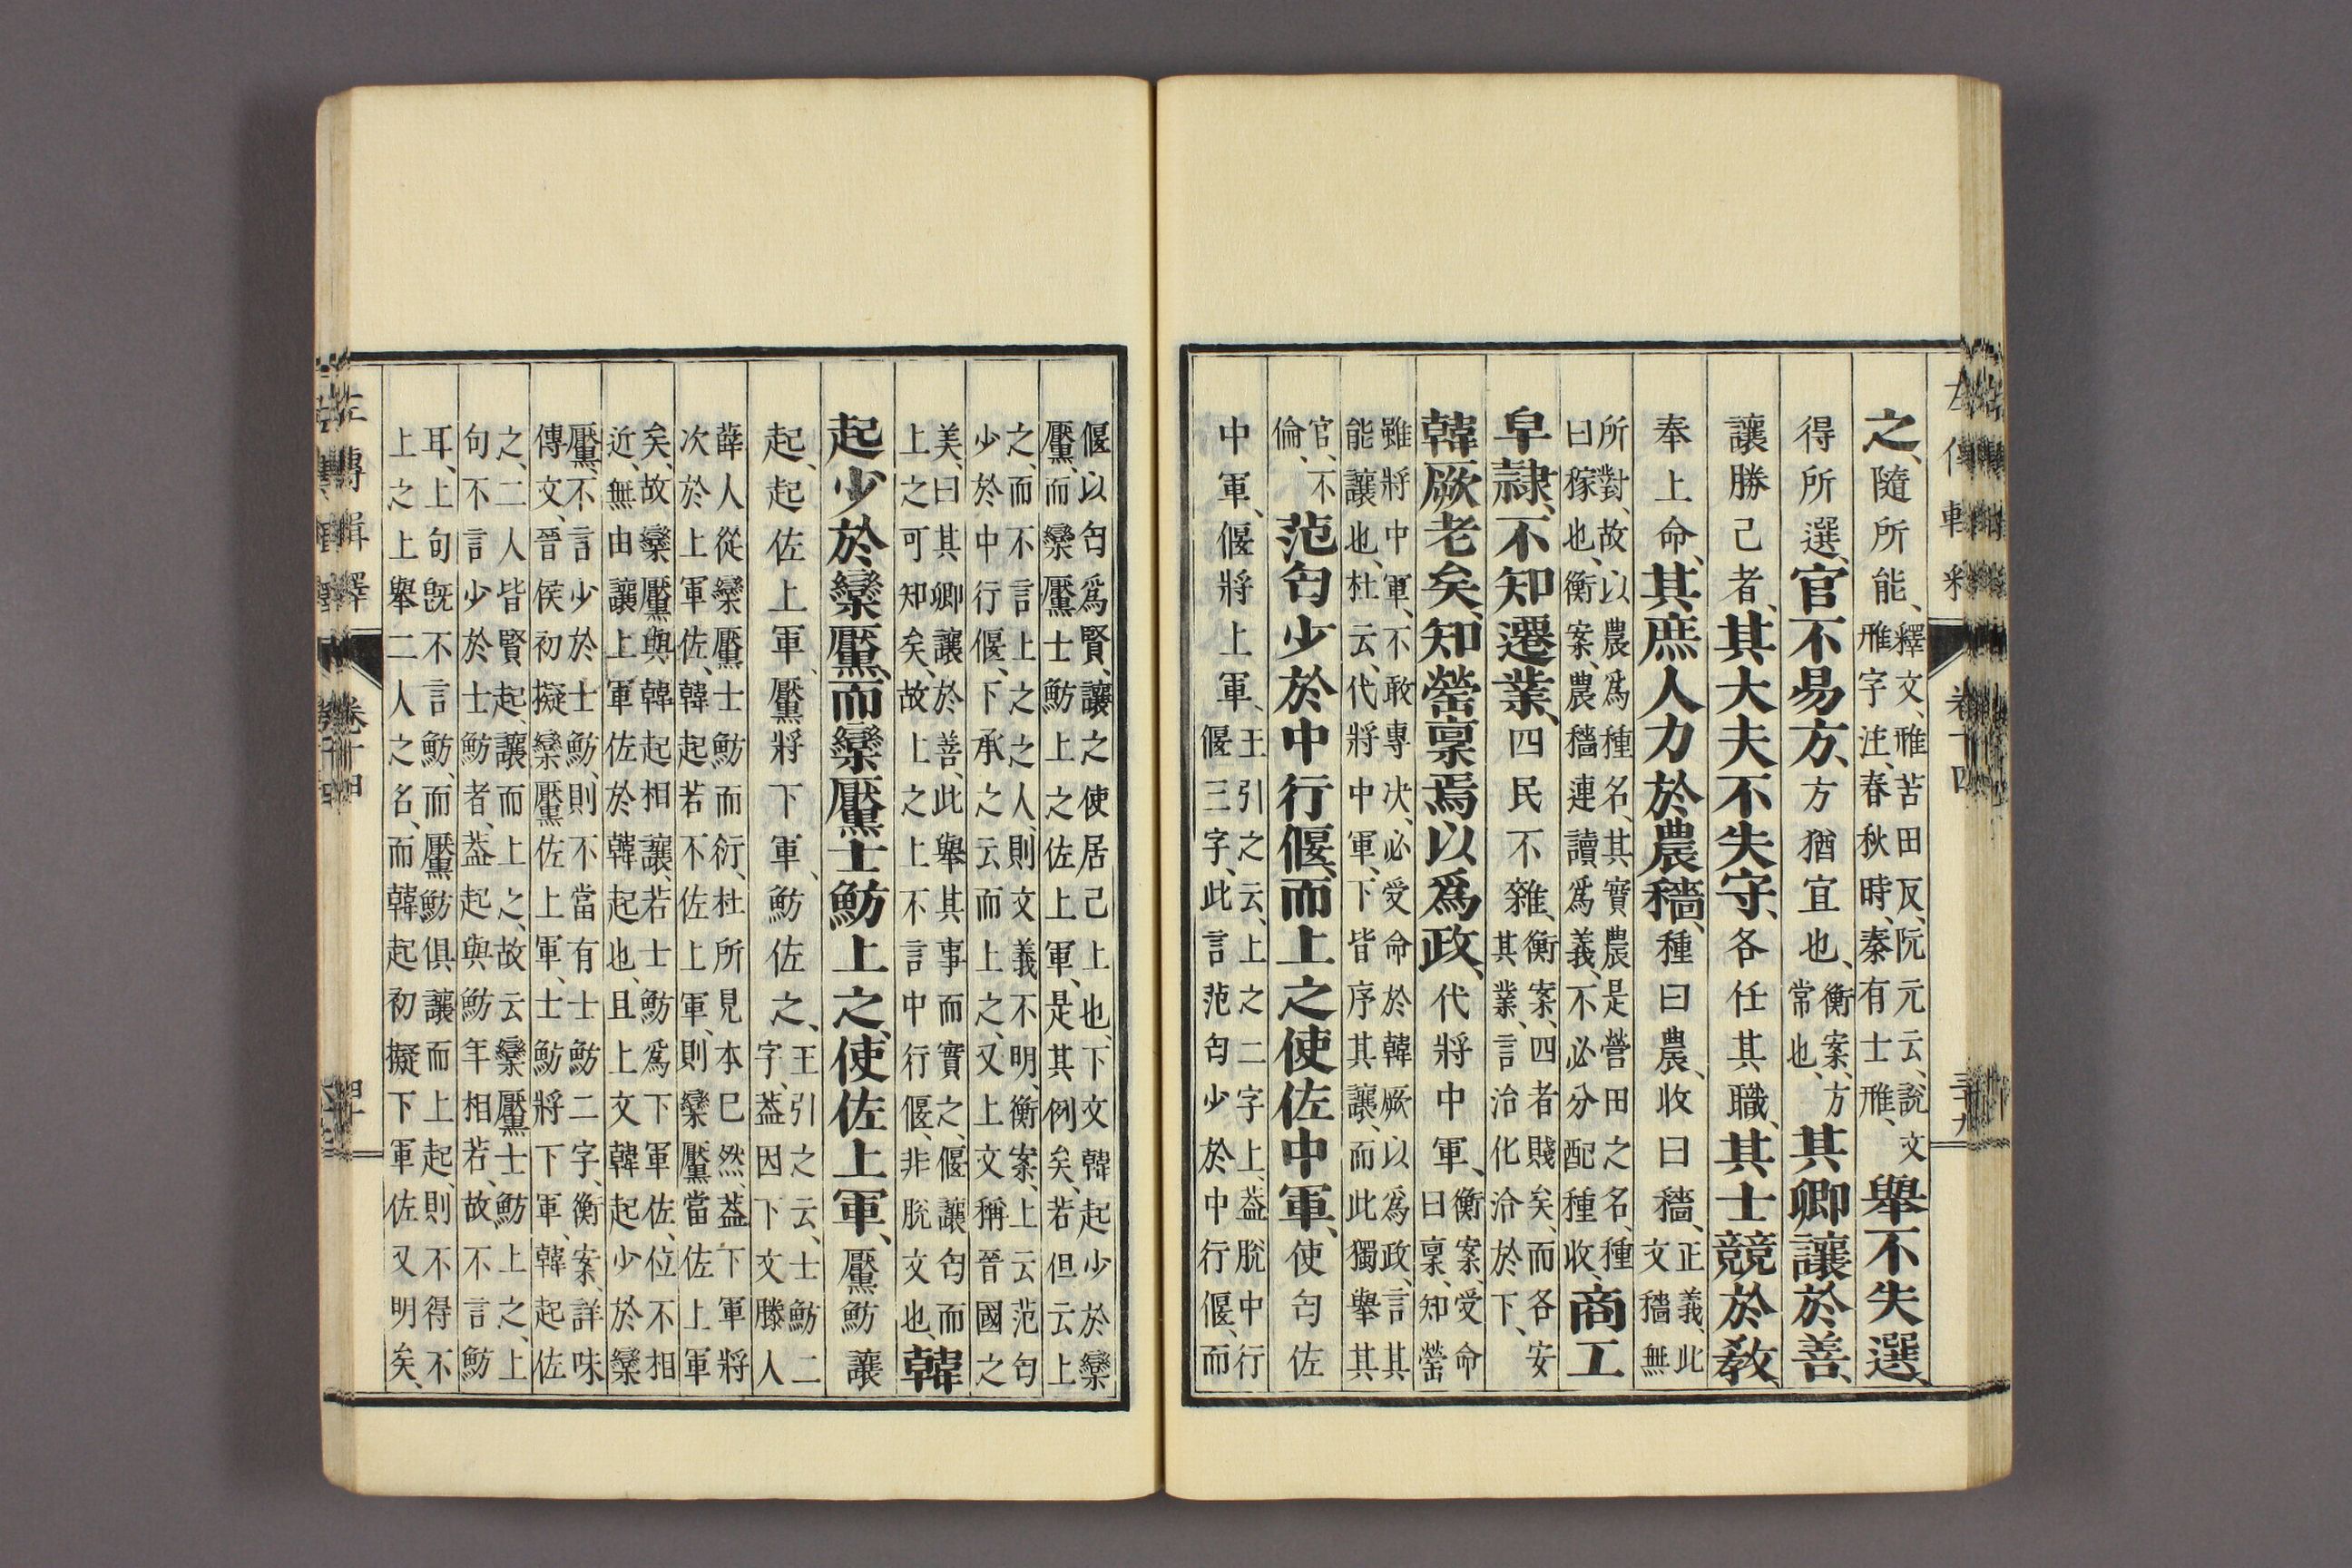 之、隨所能、釋文、雃苦田反、阮元云、說文雃字注、春秋時、秦有士雃、舉不失選、
得所選、官不易方、方猶宜也、衡案、方常也、其卿讓於善、
讓勝己者、其大夫不失守、各任其職、其士競於敎、
奉上命、其庶人力於農穡、種曰農、收曰穡、正義、此文穡無
所對、故以農爲種名、其實農是營田之名、種曰稼也、衡案、農穡連讀爲義、不必分配種收、商工
皁隷、不知遷業、四民不雜、衡案、四者賤矣、而各安其業、言治化洽於下、
韓厥老矣、知罃禀焉以爲政、代將中軍、衡案、受命曰禀、知罃
雖將中軍、不敢專决、必受命於韓厥以爲政、言其能讓也、杜云、代將中軍、下皆序其讓、而此獨舉其
官、不倫、范匄少於中行偃、而上之使佐中軍、使匄佐
中軍、偃將上軍、王引之云、上之二字上、葢脫中行偃三字、此言范匄少於中行偃、而
偃以匄爲賢、讓之使居己上也、下文韓起少於欒黶、而欒黶士魴上之佐上軍、是其例矣、若但云上
之、而不言上之之人、則文義不明、衡案、上云范匄少於中行偃、下承之云而上之、又上文稱晉國之
美、曰其卿讓於善、此舉其事而實之、偃讓匄而上之可知矣、故上之上不言中行偃、非脫文也、韓
起少於欒黶、而欒黶士魴上之、使佐上軍、黶魴讓
起、起佐上軍、黶將下軍、魴佐之、王引之云、士魴二字、葢因下文滕人
薛人從欒黶士魴而衍、杜所見本已然、葢下軍將次於上軍佐、韓起若不佐上軍、則欒黶當佐上軍
矣、故欒黶與韓起相讓、若士魴爲下軍佐、位不相近、無由讓上軍佐於韓起也、且上文韓起少於欒
黶、不言少於士魴、則不當有士魴二字、衡案、詳味傳文、晉侯初擬欒黶佐上軍、士魴將下軍、韓起佐
之、二人皆賢起、讓而上之、故云欒黶士魴上之、上句不言少於士魴者、葢起與魴年相若、故不言魴
耳、上句旣不言魴、而黶魴俱讓而上起、則不得不上之上舉二人之名、而韓起初擬下軍佐又明矣、
左傳輯釋 卷十四